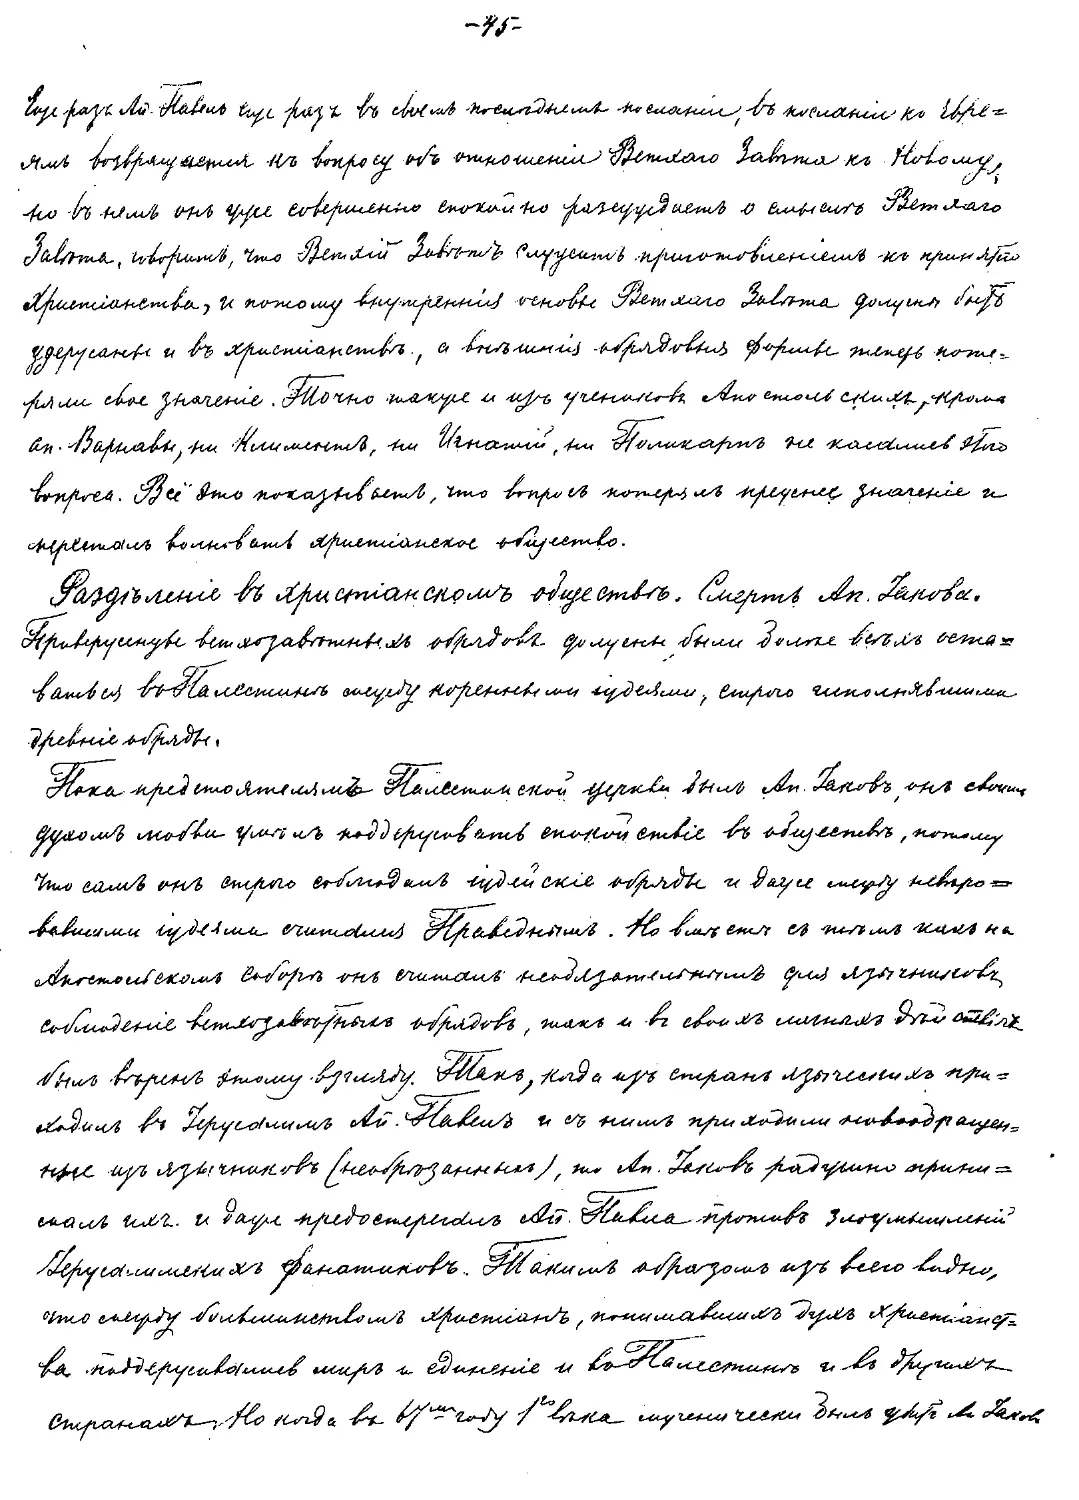 -45-
Еще разъ Ап. Павелъ еще разъ въ своемъ последнемъ посланіи, въ посланіи къ Евре=
ямъ возвращается къ вопросу объ отношеніи Ветхаго Завѣта къ Новому,
но въ немъ онъ уже совершенно спокойно разсуждаетъ о смыслѣ Ветхаго
Завѣта, говоритъ, что Ветхій Завѣтъ служитъ приготовленіемъ къ принятію
Христіанства, и потому внутреннія основы Ветхаго Завѣта должны быть
удержаны и въ христіанствѣ, а внѣшнія обрядовыя формы теперь поте=
ряли свое значеніе. Точно также и изъ учениковъ Апостольскихъ, кромѣ
ап. Варнавы, ни Климентъ, ни Игнатій, ни Поликарпъ не касались этого
вопроса. Всё это показываетъ, что вопросъ потерялъ прежнее значеніе и
пересталъ волновать христіанское общество.
Раздѣленіе въ христіанскомъ обществѣ. Смерть Ап. Іакова.
Приверженцы ветхозавѣтныхъ обрядовъ должны были болѣе всѣхъ оста=
ваться въ Палестинѣ между коренными іудеями, строго исполнявшими
древніе обряды.
Пока предстоятелямъ Палестинской церкви былъ Ап. Іаковъ, онъ своимъ
духомъ любви умѣлъ поддерживать спокойствіе въ обществѣ, потому
что самъ онъ строго соблюдалъ іудейскіе обряды и даже между невѣро=
вавшими іудеями считался Праведнымъ. Но вмѣстѣ съ тѣмъ какъ на
Апостольскомъ Соборѣ онъ считалъ необязательнымъ для язычниковъ
соблюденіе ветхозавѣтныхъ обрядовъ, такъ и въ своихъ личныхъ дѣйствіяхъ
былъ вѣренъ этому взгляду. Такъ, когда изъ странъ языческихъ при=
ходилъ въ Іерусалимъ Ап. Павелъ и съ нимъ приходили новообращен=
ные изъ язычниковъ (необрѣзанныхъ), то Ап. Іаковъ радушно прини=
малъ ихъ и даже предостерегалъ Ап. Павла противъ злоумышленій
Іерусалимскихъ фанатиковъ. Такимъ образомъ изъ всего видно,
что между большинствомъ христіанъ, понимавшихъ духъ христіанст=
ва поддерживались миръ и единеніе и въ Палестинѣ и въ другихъ
странахъ. Но когда въ году 1го вѣка мученически былъ убитъ Ап Іаковъ